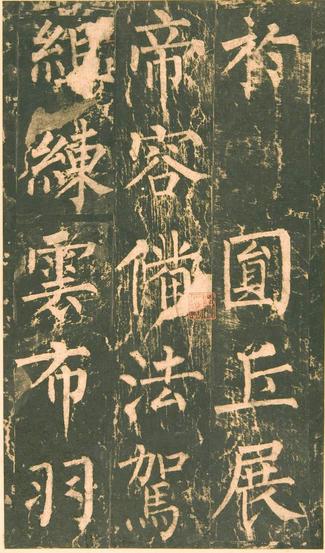 於　圓丘展
帝容備法駕
組練雲布羽